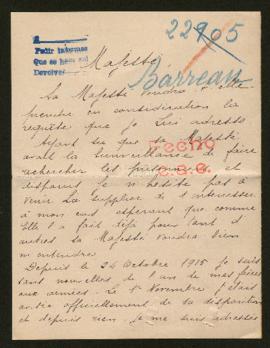 22905
A
Pedir informes
Que se haga
Devolver
Majesté
Barreau
Sa Majesté voudra-t-elle
prendre en considération la
requête que je lui adresse
Ayant su que Sa Majesté
avait la bienveillance de faire
rechercher les prisonniers et
disparus je n'hésite pas à
venir La supplier de s'intéresser
à mon cas espérant que comme
Elle l'a fait déjà pour tant d'
autres Sa Majesté voudra bien
m'entendre
Depuis le 24 Octobre 1915 je suis
sans nouvelles de l'un de mes frères
aux armées. Le 5 Novembre j'étais
avisée officiellement de sa disparition
et depuis rien. Je me suis adressée
Fecho